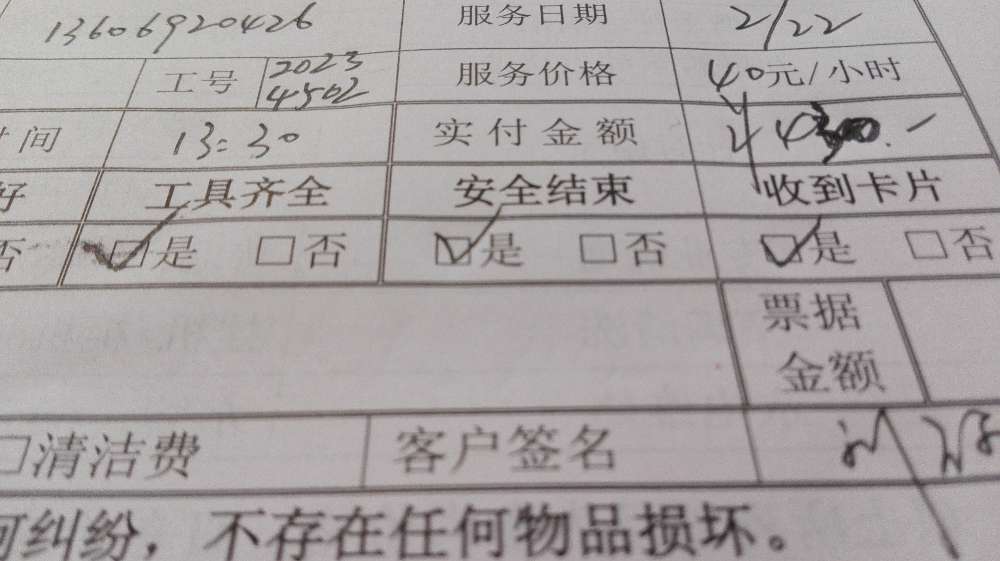 13606920426 服务日期 2/22
工号 2023 4502 服务价格 40元/小时
时间 13:30 实付金额
好 工具齐全 安全结束 收到卡片
否 ☑是 □否 ☑是 □否 ☑是 □否
票据
金额
□清洁费 客户签名
何纠纷，不存在任何物品损坏。